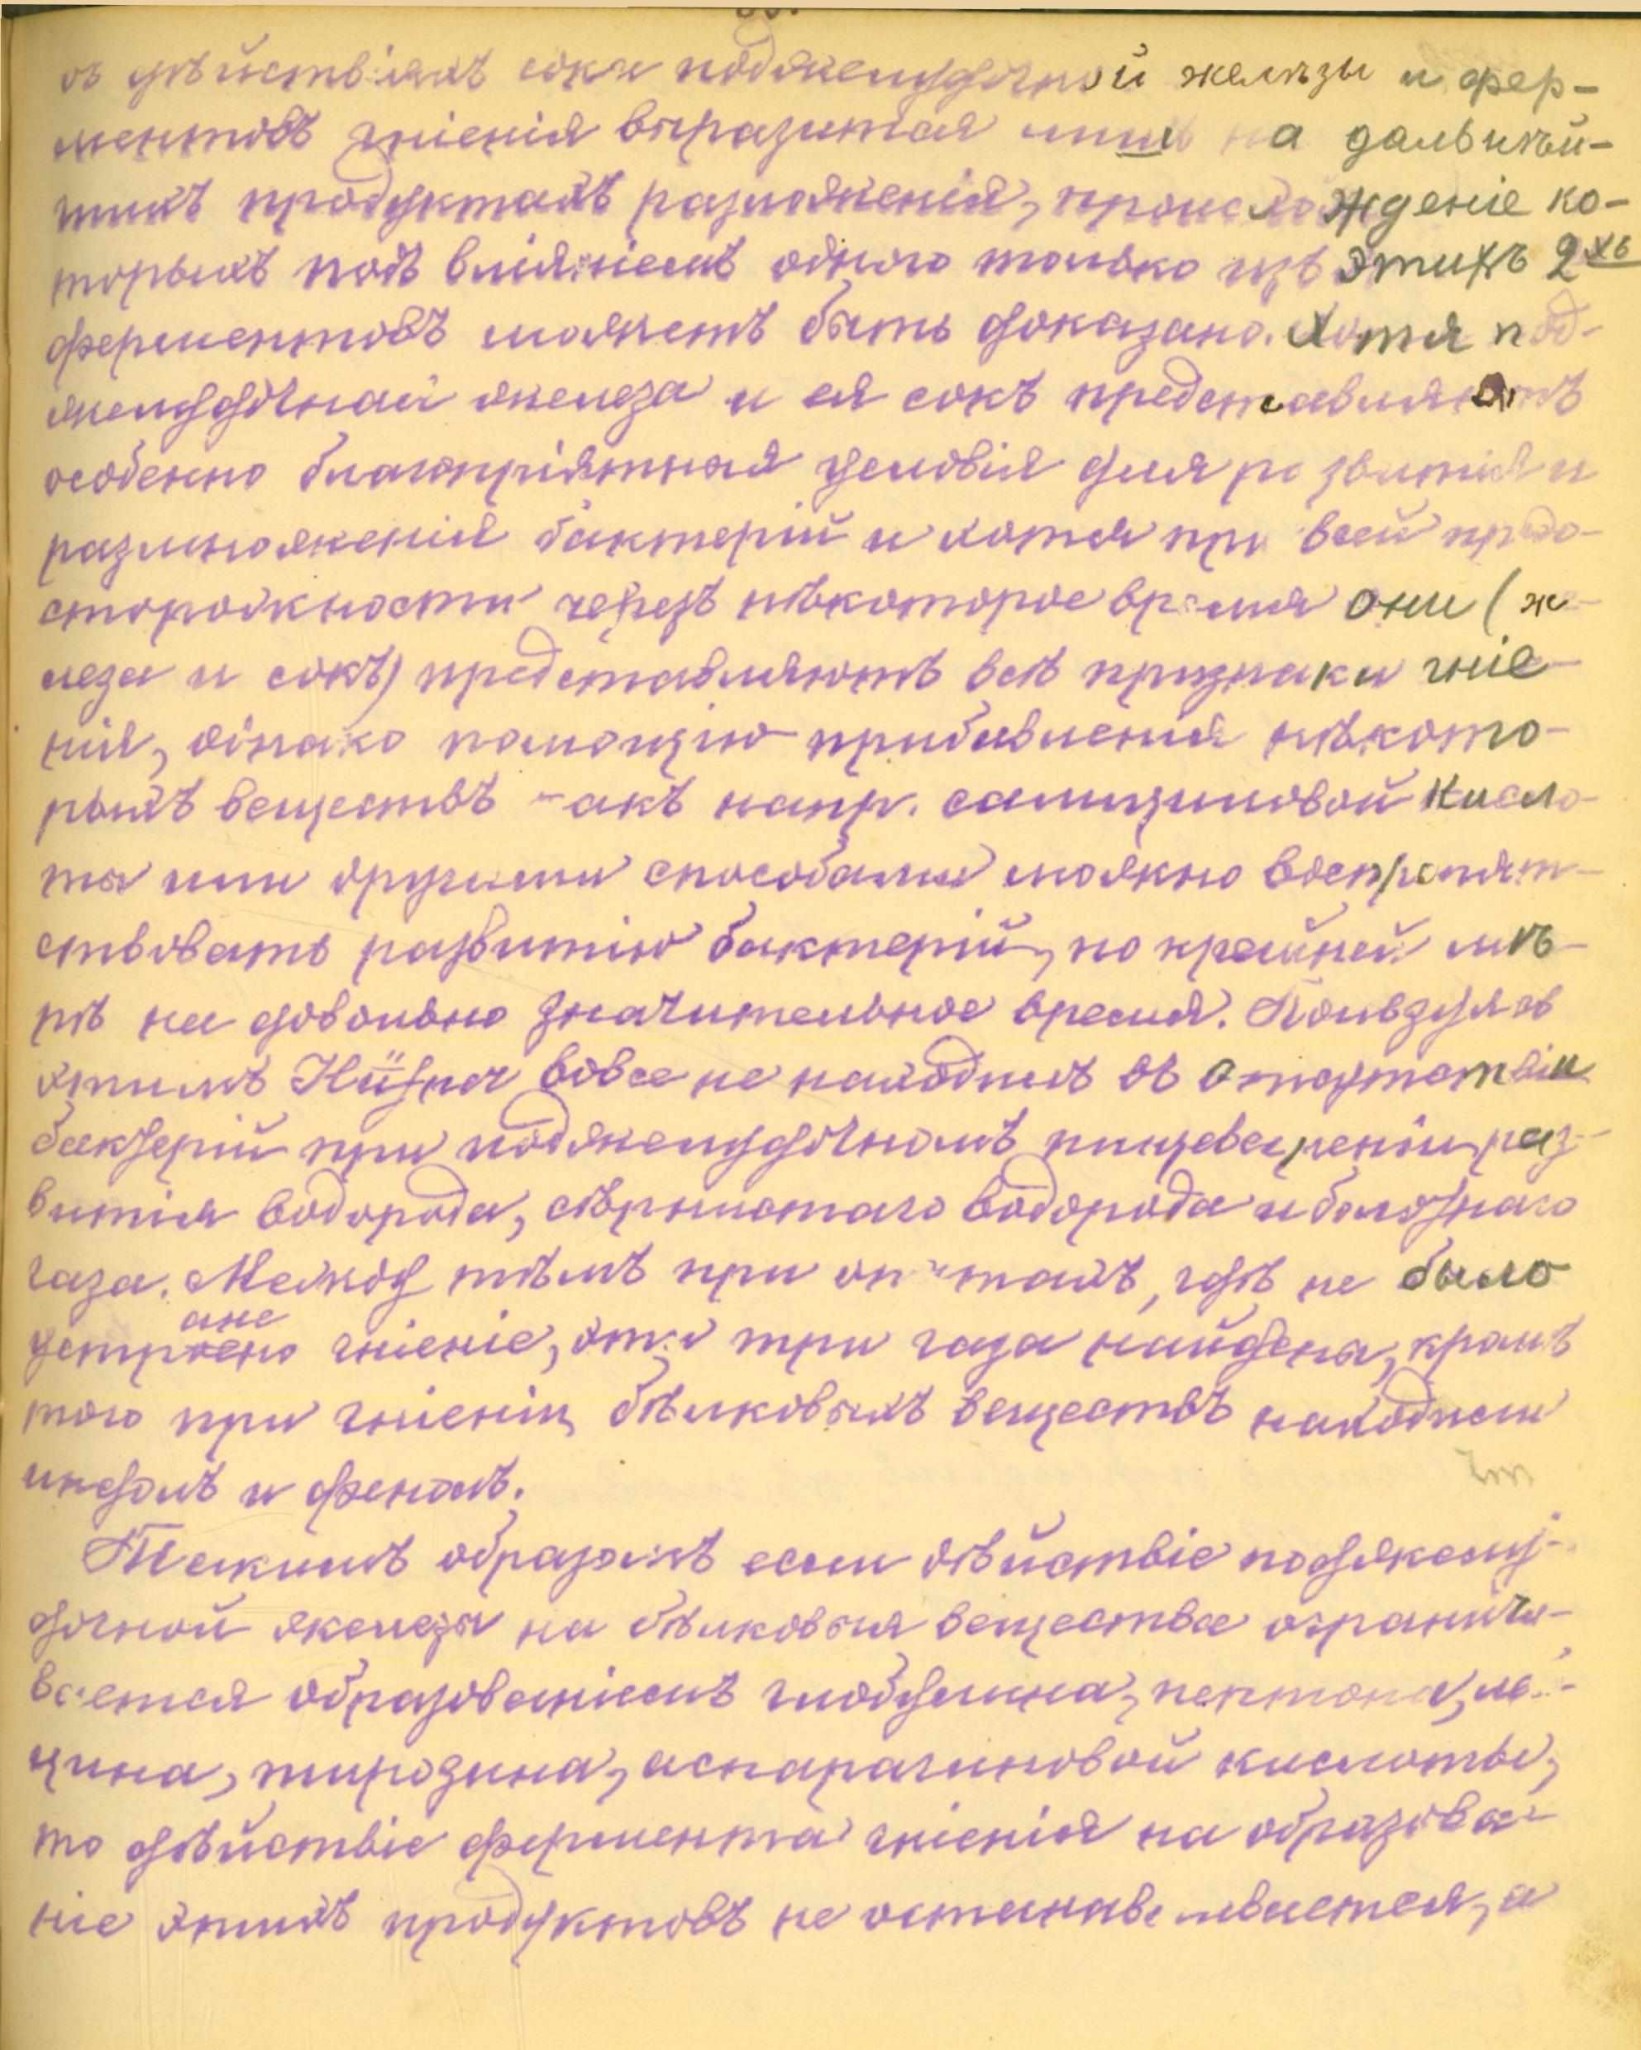 въ дѣйствіяхъ сока поджелудочной железы и фер-
ментовъ гніенія выразится лишь на дальнѣй-
шихъ продуктахъ разложенія, происхожденіе ко-
торыхъ подъ вліяніемъ одного только изъ этихъ 2хъ
ферментовъ можетъ быть доказано. Хотя под-
желудочная железа и ея сокъ представляютъ
особенно благопріятныя условія для развитія и
размноженія бактерій и хотя при всей предо-
сторожности черезъ нѣкоторое время они (же-
леза и сокъ) представляютъ всѣ признаки гніе-
нія, однако помощію прибавленія нѣкото-
рыхъ веществъ какъ напр. салициловой кисло-
ты или другими способами можно воспрепят-
ствовать развитію бактерій, по крайней мѣ-
рѣ на довольно значительное время. Пользуясь
этимъ Hüfner вовсе не находилъ въ отсутствіи
бактерій при поджелудочномъ пищевареніи раз-
витія водорода, сѣрнистаго водорода и болотнаго
газа. Между тѣмъ при опытахъ, гдѣ не было
ане
устроено гніеніе, эти три газа найдены, кромѣ
того при гніеніи бѣлковыхъ веществъ находили
индолъ и фенолъ.
Такимъ образомъ если дѣйствіе поджелу-
дочной железы на бѣлковыя вещества ограничи-
вается образованіемъ глобулина, пептона, ле-
цина, тирозина, аспарагиновой кислоты,
то дѣйствіе фермента гніенія на образова-
ніе этихъ продуктовъ не останавливается, а